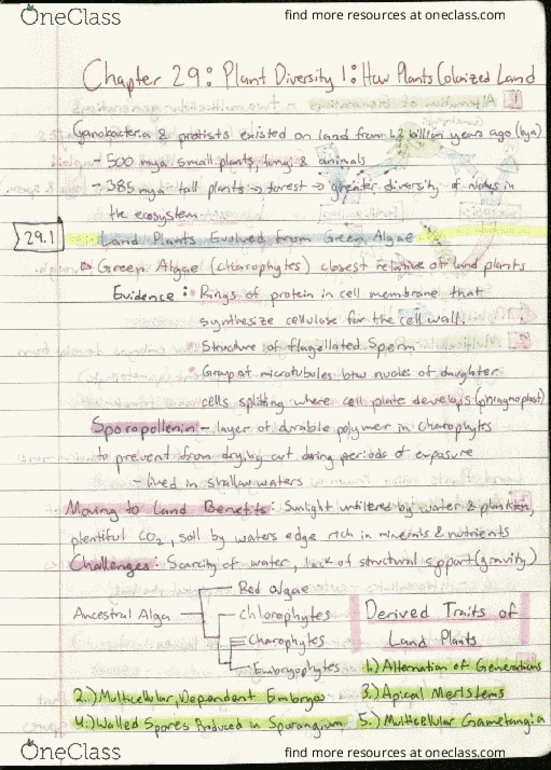 OneClass
find more resources at oneclass.com
Chapter 29: Plant Diversity I: How Plants Colonized Land
Cyanobacteria & protists existed on land from 1.2 billion years ago (bya)
- 500 mya small plants, fungi & animals
- 385 mya tall plants → forest → greater diversity of niches in
the ecosystem
29.1
Land Plants Evolved From Green Algae
Green Algae (charophytes) closest relative of land plants
Evidence: • Rings of protein in cell membrane that
synthesize cellulose for the cell wall.
• Structure of flagellated Sperm
• Group of microtubules btw nuclei of daughter
cells splitting where cell plate develops (phragmoplast)
Sporopollenin - layer of durable polymer in charophytes
to prevent from drying out during periods of exposure
- lived in shallow waters
Moving to Land Benefits: Sunlight unfiltered by water & plankton,
plentiful CO₂, soil by waters edge rich in minerals & nutrients
Challenges: Scarcity of water, lack of structural support (gravity)
Red algae
Ancestral Alga
Chlorophytes
Charophytes
Embryophytes
Derived Traits of
Land Plants
1.) Alternation of Generations
2.) Multicellular, Dependent Embryos
3.) Apical Meristems
4.) Walled Spores Produced in Sporangium
5.) Multicellular Gametangia
OneClass
find more resources at oneclass.com